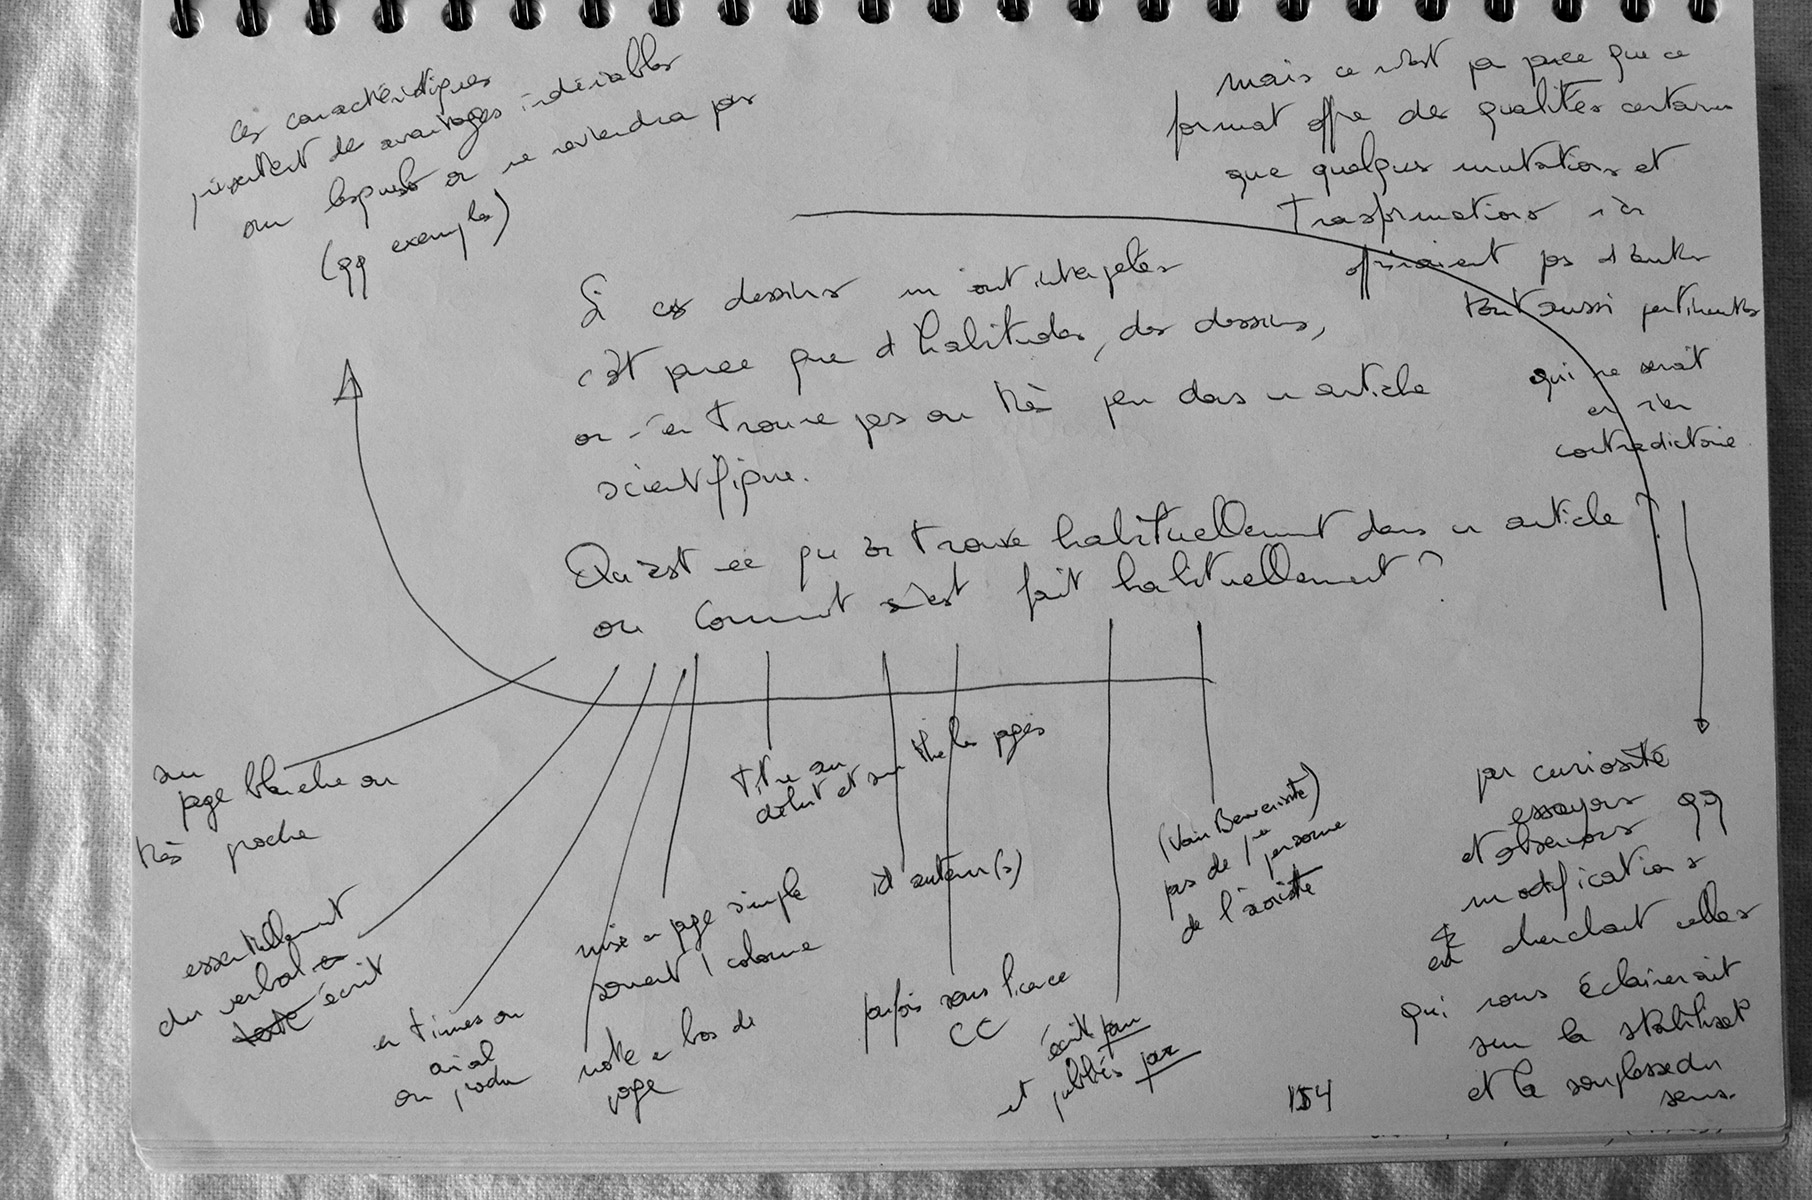 ces caractéristiques
présentent des avantages indéniables
sur lesquels on ne reviendra pas
(qq exemples)
Si ces dessins m'ont interpelés
c'est parce que d'habitudes, des dessins,
on n'en trouve pas ou très peu dans un article
scientifique.
Qu'est-ce qu'on trouve habituellement dans un article ?
ou comment s'est fait habituellement ?
mais ce n'est pas parce que ce
format offre des qualités certaines
que quelques mutations et
transformations n'en
offriraient pas d'autres
tout aussi pertinentes
qui ne serait
en rien
contradictoire
par curiosité
essayons
et observons qq
modifications
et cherchant celles
qui nous éclairerait
sur la stabilité
et la souplesse du
sens.
sur
page blanche ou
très proche
essentiellement
du verbal
texte écrit
en times ou
arial
ou
mise en page simple
souvent 1 colonne
note en bas de
page
titre au
début et sur les pages
id auteur(s)
parfois sous licence
CC
écrit par
et publiés par
(voir Benveniste)
pas de 1ère personne
de l'aoriste
154